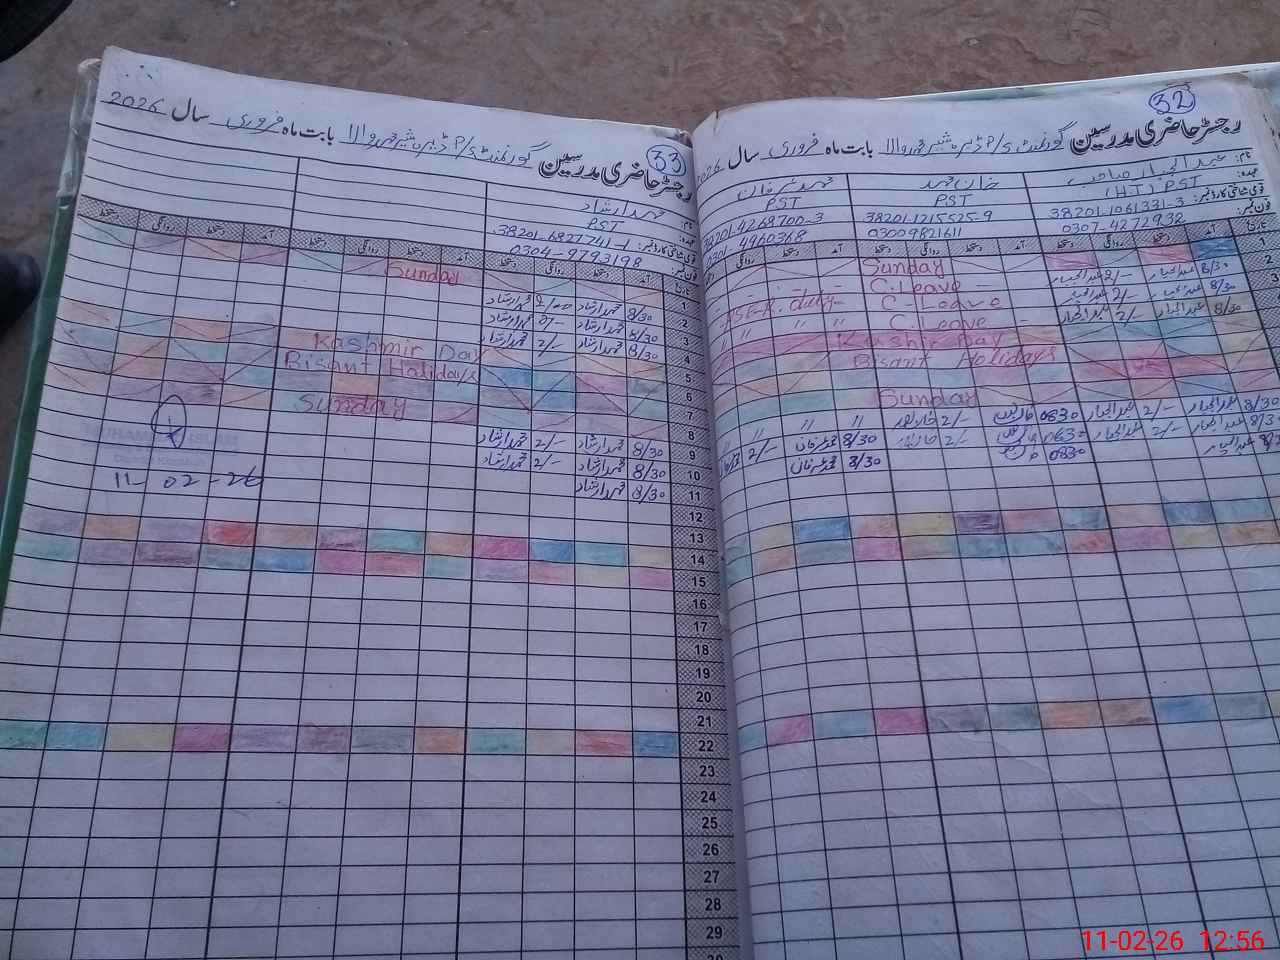 32
رجسٹر حاضری مدرسین گورنمنٹ P/S ڈیرہ شیر محمد والا بابت ماہ فروری سال 2026
نام: عبدالجبار صاحب
خان محمد
محمد عرفان
عہدہ: PST (H.T)
PST
PST
قومی شناختی کارڈ نمبر: 38201-1061331-3
38201-1215525-9
38201-4268700-3
فون نمبر: 0307-4272932
03009821611
4960368
تاریخ آمد دستخط روانگی دستخط آمد دستخط روانگی دستخط آمد دستخط روانگی
1 Sunday
2 8/30 عبدالجبار 2/- عبدالجبار C.Leave
3 8/30 عبدالجبار 2/- عبدالجبار C-Leave duty
8/30 عبدالجبار 2/- عبدالجبار C.Leave " "
Kashmir Day
Bisant Holidays
Sunday
8/30 عبدالجبار 2/- عبدالجبار 0830 2/- " " " "
8/30 عبدالجبار 2/- عبدالجبار 0830 2/- 8/30 محمد عرفان 2/-
8/30 0830 8/30 محمد عرفان
33
رجسٹر حاضری مدرسین گورنمنٹ P/S ڈیرہ شیر محمد والا بابت ماہ فروری سال 2026
نام: محمد ارشاد
عہدہ: PST
قومی شناختی کارڈ نمبر: 38201-6827741-1
فون نمبر: 0304-9793198
تاریخ آمد دستخط روانگی دستخط آمد دستخط روانگی دستخط آمد دستخط روانگی دستخط
1 Sunday
2 8/30 محمد ارشاد 2/00 محمد ارشاد
3 8/30 محمد ارشاد 2/- محمد ارشاد
4 8/30 محمد ارشاد 2/- محمد ارشاد
5 Kashmir Day
6 Bisant Halidays
7
8 Sunday
9 8/30 محمد ارشاد 2/- محمد ارشاد
10 8/30 محمد ارشاد 2/- محمد ارشاد
11 8/30 محمد ارشاد
11-02-26
12
13
14
15
16
17
18
19
20
21
22
23
24
25
26
27
28
29
11-02-26 12:56